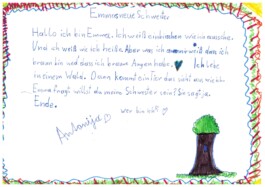 Emmasneue Schwester
Hallo ich bin Emma. Ich weiß
Und ich weiß wie ich heiße. Aber was ich weiß das ich
braun bin und das ich braune Augen habe. Ich lebe
in einem Wald. Dann kommt ein Tier das sieht aus wie ich
Emma fragt willst du meine Schwester sein? Sie sagt ja.
Ende.
wer bin ich?
Antonija